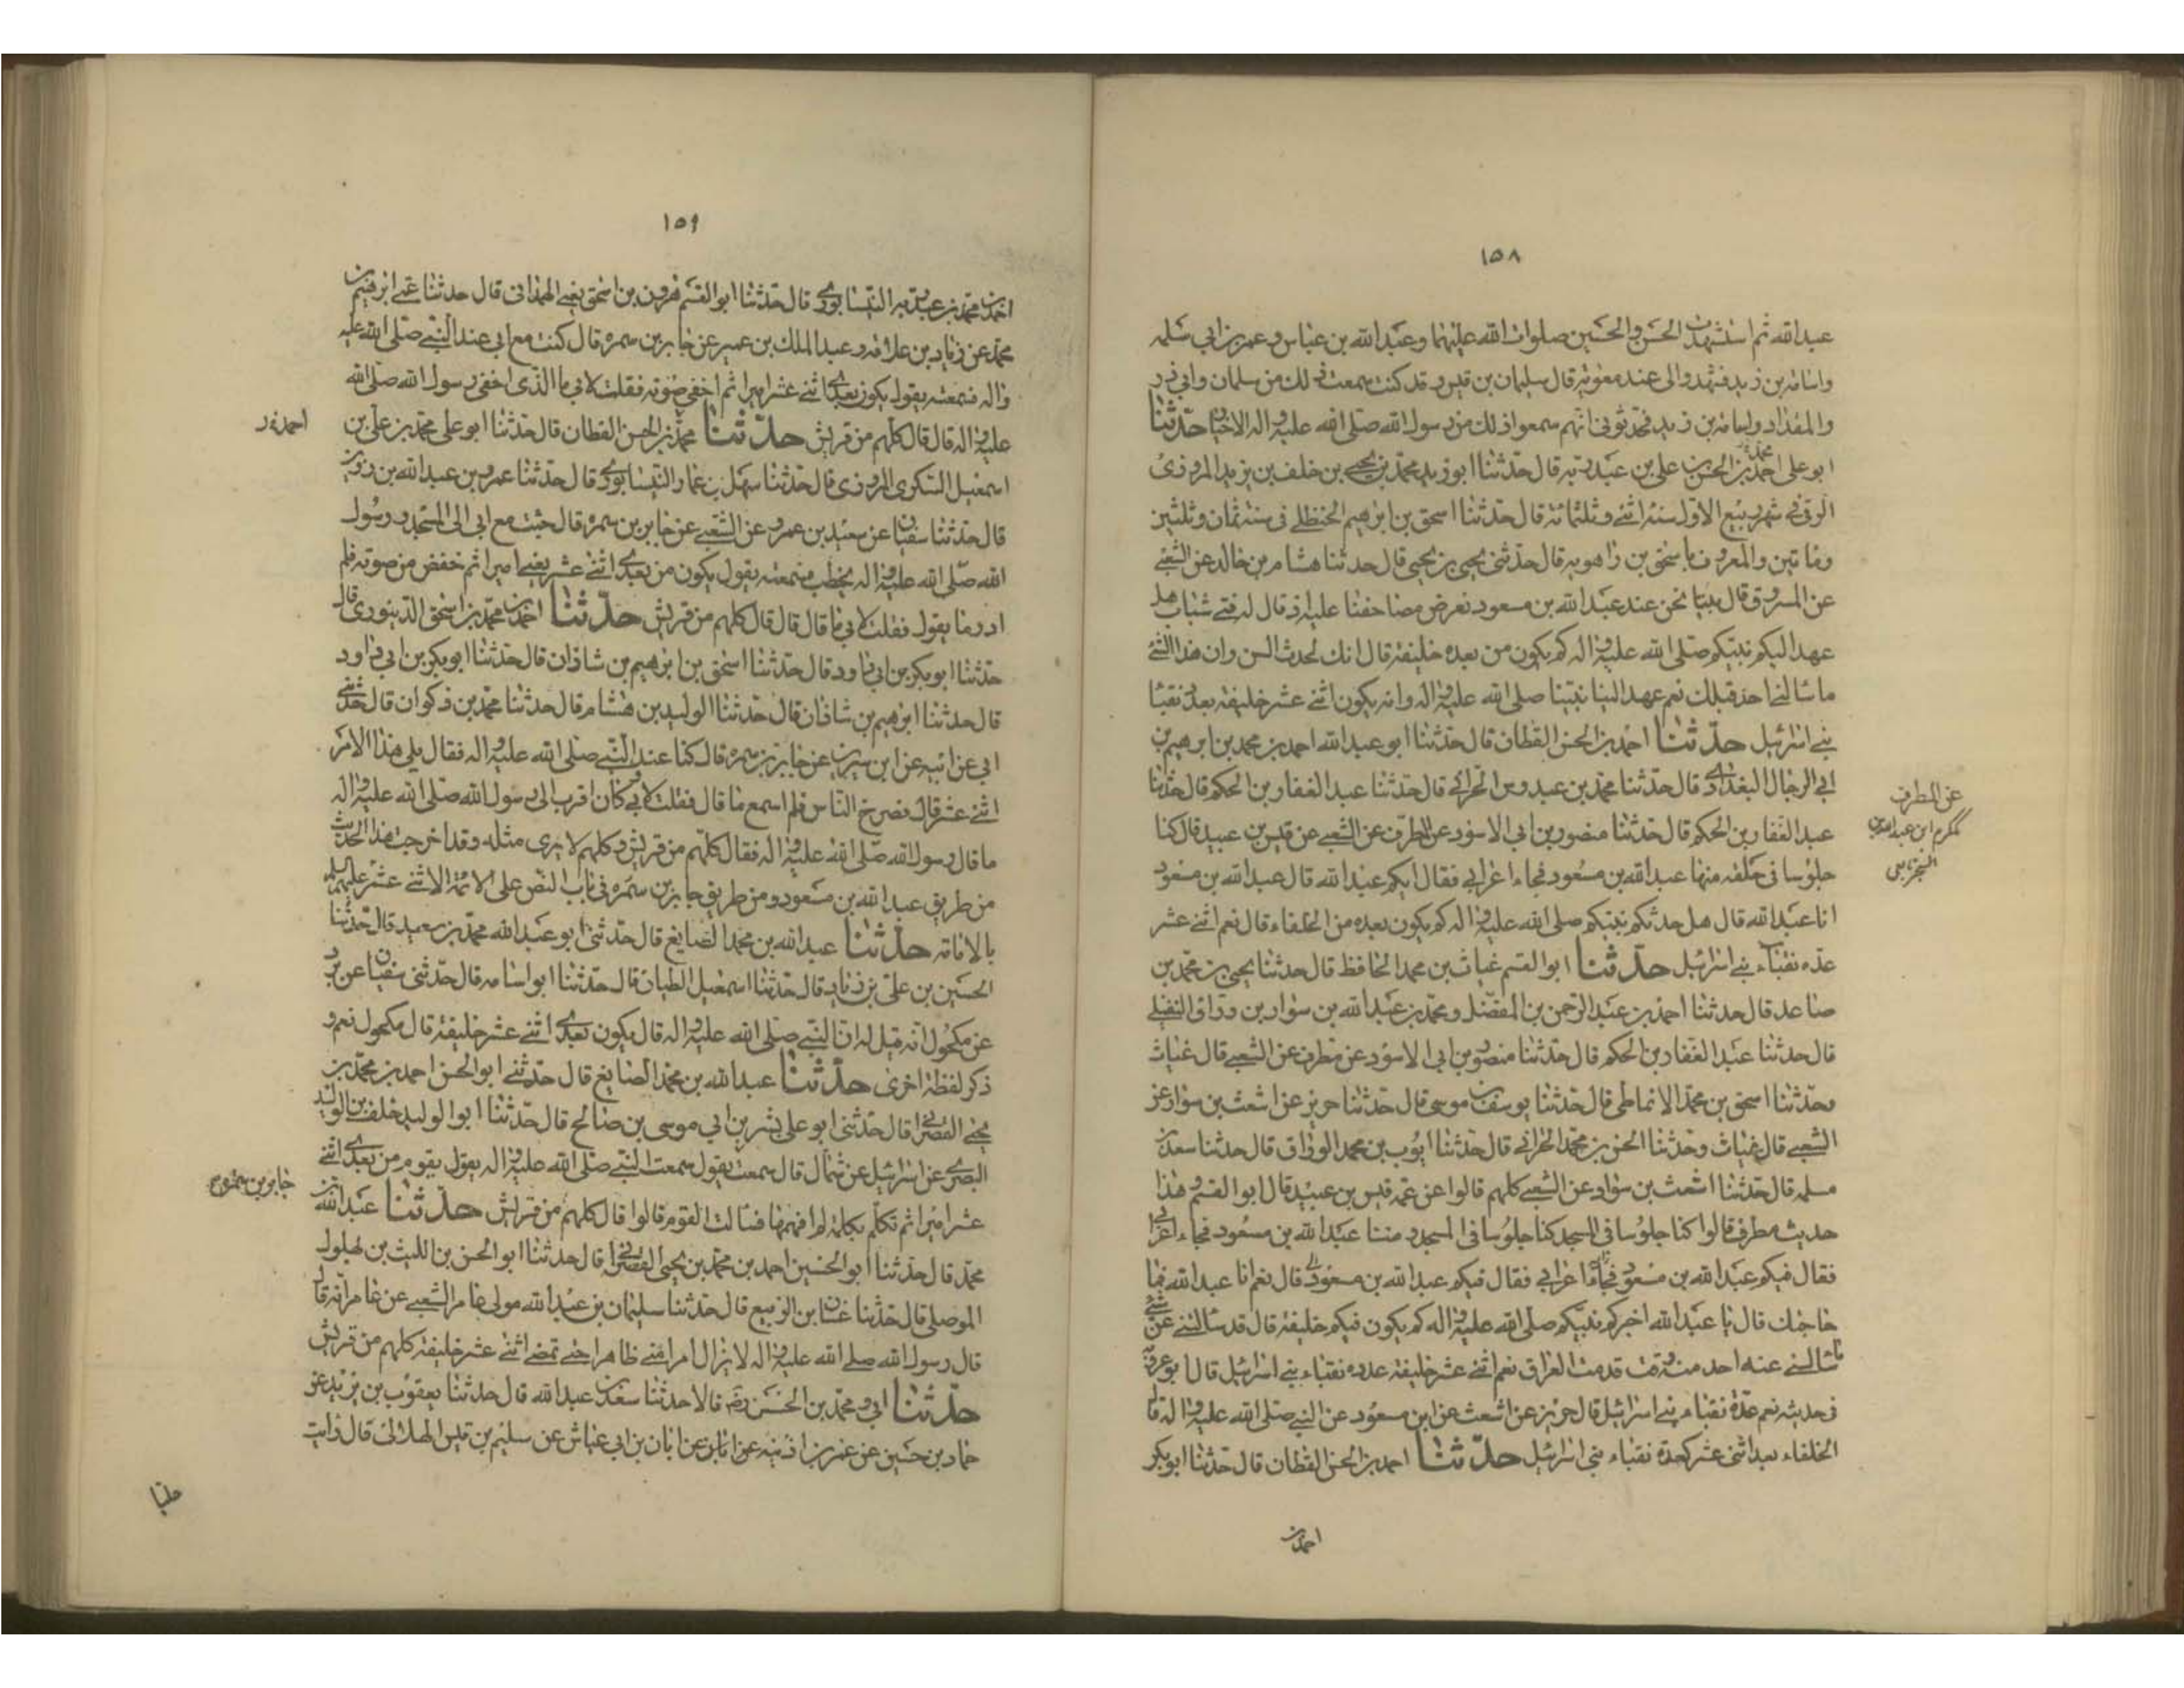 ١٥٨
عبدالله ثم استشهدت الحسن والحسين صلوات الله عليهما وعبدالله بن عباس وعمر بن ابي سلمه
واسامه بن زيد فشهدوا لى عند معوية قال سليمان بن قيس وقد كنت سمعت ذلك من سلمان وابي ذر
والمقداد واسامة بن زيد فحدثونى انهم سمعوا ذلك من رسول الله صلى الله عليه واله الاخبار حدثنا
ابو على احمد بن الحسن بن على بن عبد ربه قال حدثنا ابو زيد محمد بن يحيى بن خلف بن يزيد المروزى
الرى فى شهر ربيع الاول سنة اثنى وثلثمائة قال حدثنا اسحق بن ابرهيم الحنظلى فى سنة ثمان وثلثين
وماتين والمعروف باسحق بن راهويه قال حدثنى يحيى بن يحيى قال حدثنا هشام بن خالد عن الشعبى
عن المسروق قال بينا نحن عند عبدالله بن مسعود نعرض مصاحفنا عليه اذ قال له فتى شاب هل
عهد اليكم نبيكم صلى الله عليه واله كم يكون من بعده خليفة قال انك لحدث السن وان هذا الشئ
ما سالنى احد قبلك نعم عهد الينا نبينا صلى الله عليه واله وانه يكون اثنى عشر خليفة بعدد نقبا
بنى اسرئيل حدثنا احمد بن الحسن القطان قال حدثنا ابو عبدالله احمد بن محمد بن ابرهيم بن
ابى الرجال البغدادى قال حدثنا محمد بن عبدوس الحرانى قال حدثنا عبد الغفار بن الحكم قال حدثنا
عبد الغفار بن الحكم قال حدثنا منصور بن ابى الاسود عن المطرف عن الشعبى عن قيس بن عبيد قال كنا
جلوسا فى حلقة منها عبدالله بن مسعود فجاء اعرابى فقال ايكم عبدالله قال عبدالله بن مسعود
انا عبدالله قال هل حدثكم نبيكم صلى الله عليه واله كم يكون بعده من الخلفاء قال نعم اثنى عشر
عدة نقباء بنى اسرئيل حدثنا ابو القسم غياث بن محمد الحافظ قال حدثنا يحيى بن محمد بن
صاعد قال حدثنا احمد بن عبد الرحمن بن المفضل ومحمد بن عبدالله بن سوار بن
قال حدثنا عبد الغفار بن الحكم قال حدثنا منصور بن ابى الاسود عن مطرف عن الشعبى قال غياث
وحدثنا اسحق بن محمد الانماطى قال حدثنا يوسف بن موسى قال حدثنا جرير عن اشعث بن سوار عن
الشعبى قال غياث وحدثنا الحسن بن محمد الحرانى قال حدثنا ايوب بن محمد الوزاق قال حدثنا سعد بن
مسلمه قال حدثنا اشعث بن سوار عن الشعبى كلهم قالوا عن عمه قيس بن عبيد قال ابو القسم وهذا
حديث مطرف قالوا كنا جلوسا فى المسجد كنا جلوسا فى المسجد ومعنا عبدالله بن مسعود فجاء اعرابى
فقال فيكم عبدالله بن مسعود فجاء اعرابى فقال فيكم عبدالله بن مسعود قال نعم انا عبدالله فما
حاجتك قال يا عبدالله اخبركم نبيكم صلى الله عليه واله كم يكون فيكم خليفة قال قد سالتنى عن شئ
ما سالنى عنه احد منذ قدمت العراق نعم اثنى عشر خليفة عدده نقباء بنى اسرئيل قال ابو عروبة
فى حديثه نعم عدة نقباء بنى اسرئيل قال جرير عن اشعث عن ابن مسعود عن النبى صلى الله عليه واله قال
الخلفاء بعد اثنى عشر كعدة نقباء بنى اسرئيل حدثنا احمد بن الحسن القطان قال حدثنا ابو بكر
احمد بن
عن المطرف
١٥٩
احمد بن محمد بن عبد ربه النيسابورى قال حدثنا ابو القسم هرون بن اسحق يعنى الهمدانى قال حدثنا عمى ابرهيم بن
محمد عن زياد بن علاقه وعبد الملك بن عمير عن جابر بن سمره قال كنت مع ابى عند النبى صلى الله عليه
واله فسمعته يقول يكون بعدى اثنى عشر اميرا ثم اخفى صوته فقلت لابى ما الذى اخفى رسول الله صلى الله
عليه واله قال قال كلهم من قريش حدثنا محمد بن الحسن القطان قال حدثنا ابو على محمد بن على بن
اسمعيل السكرى المروزى قال حدثنا سهل بن عمار النيسابورى قال حدثنا عمرو بن عبدالله بن رزين
قال حدثنا سفيان عن سعيد بن عمرو عن الشعبى عن جابر بن سمره قال جئت مع ابى الى المسجد ورسول
الله صلى الله عليه واله يخطب فسمعته يقول يكون من بعدى اثنى عشر يعنى اميرا ثم خفض من صوته فلم
ادر ما يقول فقلت لابى ما قال قال قال كلهم من قريش حدثنا احمد بن محمد بن اسحق الدينورى قال
حدثنا ابو بكر بن ابى داود قال حدثنا اسحق بن ابرهيم بن شاذان قال حدثنا ابو بكر بن ابى داود
قال حدثنا ابرهيم بن شاذان قال حدثنا الوليد بن هشام قال حدثنا محمد بن ذكوان قال حدثنى
ابى عن ابيه عن ابن سيرين عن جابر بن سمره قال كنا عند النبى صلى الله عليه واله فقال يلى هذا الامر
اثنى عشر قال فصرخ الناس فلم اسمع ما قال فقلت لابى وكان اقرب الى رسول الله صلى الله عليه واله
ما قال رسول الله صلى الله عليه واله فقال كلهم من قريش وكلهم لا يرى مثله وقد اخرجت هذا الحديث
من طريق عبدالله بن مسعود ومن طريق جابر بن سمره فى باب النص على الائمة الاثنى عشر عليهم السلم
بالامامة حدثنا عبدالله بن محمد الصايغ قال حدثنى ابو عبدالله محمد بن سعيد قال حدثنا
الحسين بن على بن زياد قال حدثنا اسمعيل الطيان قال حدثنا ابو اسامه قال حدثنى سفيان عن برد
عن مكحول انه قيل له ان النبى صلى الله عليه واله قال يكون بعدى اثنى عشر خليفة قال مكحول نعم و
ذكر لفظة اخرى حدثنا عبدالله بن محمد الصايغ قال حدثنى ابو الحسن احمد بن محمد بن
يحيى القصرانى قال حدثنى ابو على بشر بن ابى موسى بن صالح قال حدثنا ابو الوليد خلف بن الوليد
البصرى عن اسرئيل عن سماك قال سمعت يقول سمعت النبى صلى الله عليه واله يقول يقوم من بعدى اثنى
عشر اميرا ثم تكلم بكلمة لم افهمها فسالت القوم قالوا قال كلهم من قريش حدثنا عبدالله بن
محمد قال حدثنا ابو الحسين احمد بن محمد بن يحيى القصرانى قال حدثنا ابو الحسن بن الليث بن بهلول
الموصلى قال حدثنا غسان بن الربيع قال حدثنا سليمان بن عبدالله مولى عامر الشعبى عن عامر انه قال
قال رسول الله صلى الله عليه واله لا يزال امر امتى ظاهرا حتى تمضى اثنى عشر خليفة كلهم من قريش
حدثنا ابى ومحمد بن الحسن رضه قالا حدثنا سعد بن عبدالله قال حدثنا يعقوب بن يزيد عن
حماد بن حسين عن عمر بن اذينه عن ابان عن ابان بن ابى عياش عن سليم بن قيس الهلالى قال رايت
عليا
جابر بن سمره